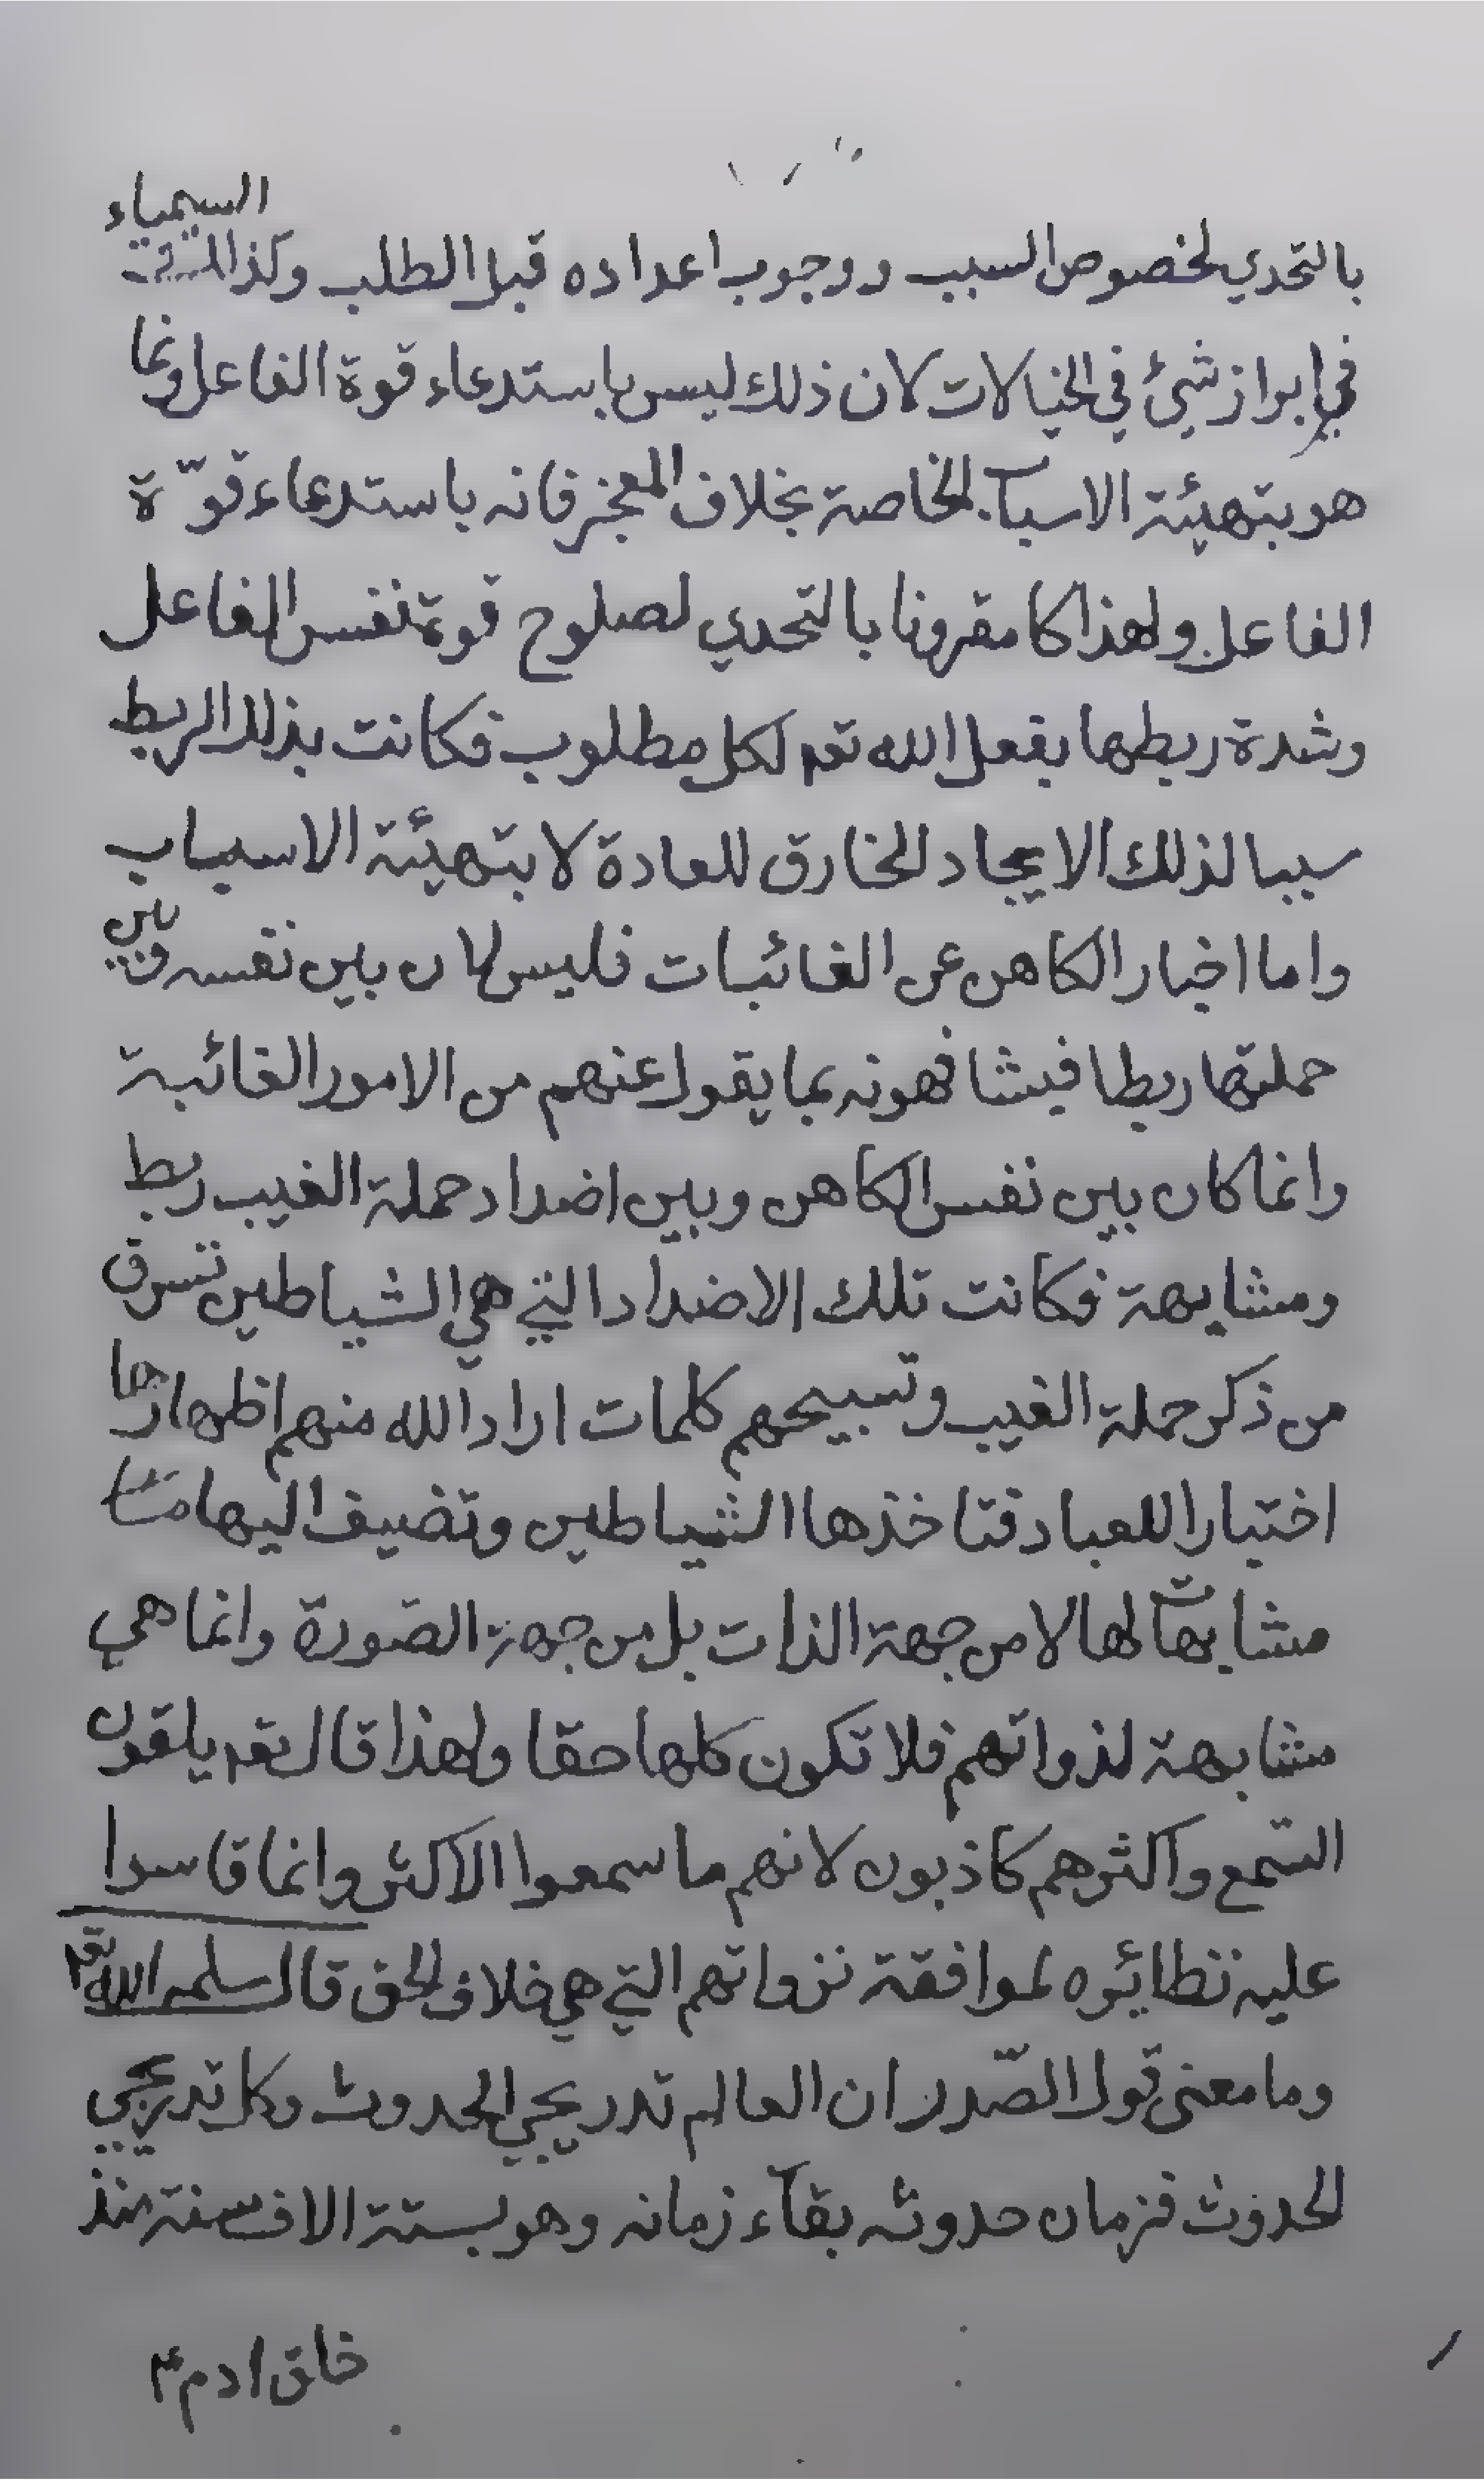 السيمياء
بالتحدي لخصوص السبب ووجوب اعداده قبل الطلب وكذا
في ابراز شئ في الخيالات لان ذلك ليس باستدعاء قوة الفاعل وانما
هو بتهيئة الاسباب الخاصة بخلاف المعجز فانه باستدعاء قوّة
الفاعل ولهذا كا مقرونا بالتحدي لصلوح قوة نفس الفاعل
وشدة ربطها بفعل الله تعہ لكل مطلوب فكانت بذلك الربط
سببا لذلك الايجاد الخارق للعادة لا بتهيئة الاسباب
واما اخبار الكاهن عن الغائبات فليس لان بين نفسه وبين
حملتها ربطا فيشافهونه بما يقول عنهم من الامور الغائبة
وانما كان بين نفس الكاهن وبين اضداد حملة الغيب ربط
ومشابهة فكانت تلك الاضداد التي هي الشياطين تسرق
من ذكر حملة الغيب وتسبيحهم كلمات اراد الله منهم اظهارها
اختبارا للعباد فتاخذها الشياطين وتضيف اليها
مشابهات لها لا من جهة الذات بل من جهة الصّورة وانما هي
مشابهة لذواتهم فلا تكون كلها حقا ولهذا قال تعہ يلقون
السّمع واكثرهم كاذبون لانهم ما سمعوا الاكثر وانما قاسوا
عليه نظائره لموافقة نزواتهم التي هي خلاف الحق قال سلمه الله تعہ
وما معنى قول الصّدر ان العالم تدريجي الحدوث وكل تدريجي
الحدوث فزمان حدوثه بقآء زمانه وهو بستة الاف سنة منذ
خلق ادم ۴